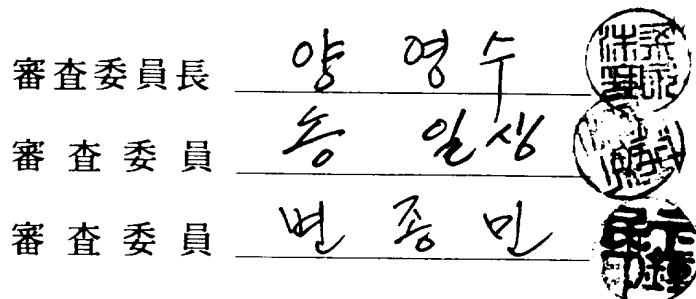 審査委員長 양영수
審査委員 송일생
審査委員 변종민